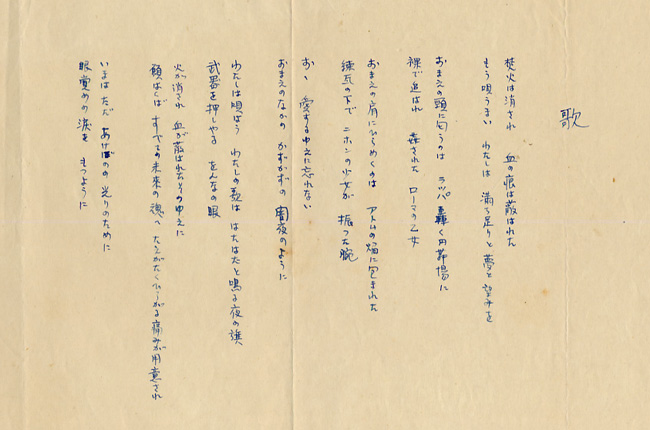 歌
焚火は消され 血の痕は蔽はれた
もう唄うまい わたしは 満ち足りと夢と望みを
おまえの頭に匂うのは ラッパ轟く円形場に
裸で追ばれ 姦された ローマの乙女
おまえの肩にひらめくのは アトムの焔に包まれた
煉瓦の下で ニホンの少女が 振った腕
おゝ 愛するゆえに忘れない
おまえのなかの かずかずの 闇夜のように
わたしは唄はう わたしの歌は はたはたと鳴る夜の旗
武器を押しやる をんなの眼
火が消され 血が蔽はれたそのゆえに
願はくば すべての未来の魂へ たえがたくひろがる痛みが用意され
いまは ただ あけぼのの光りのために
眼覚めの涙を もつように